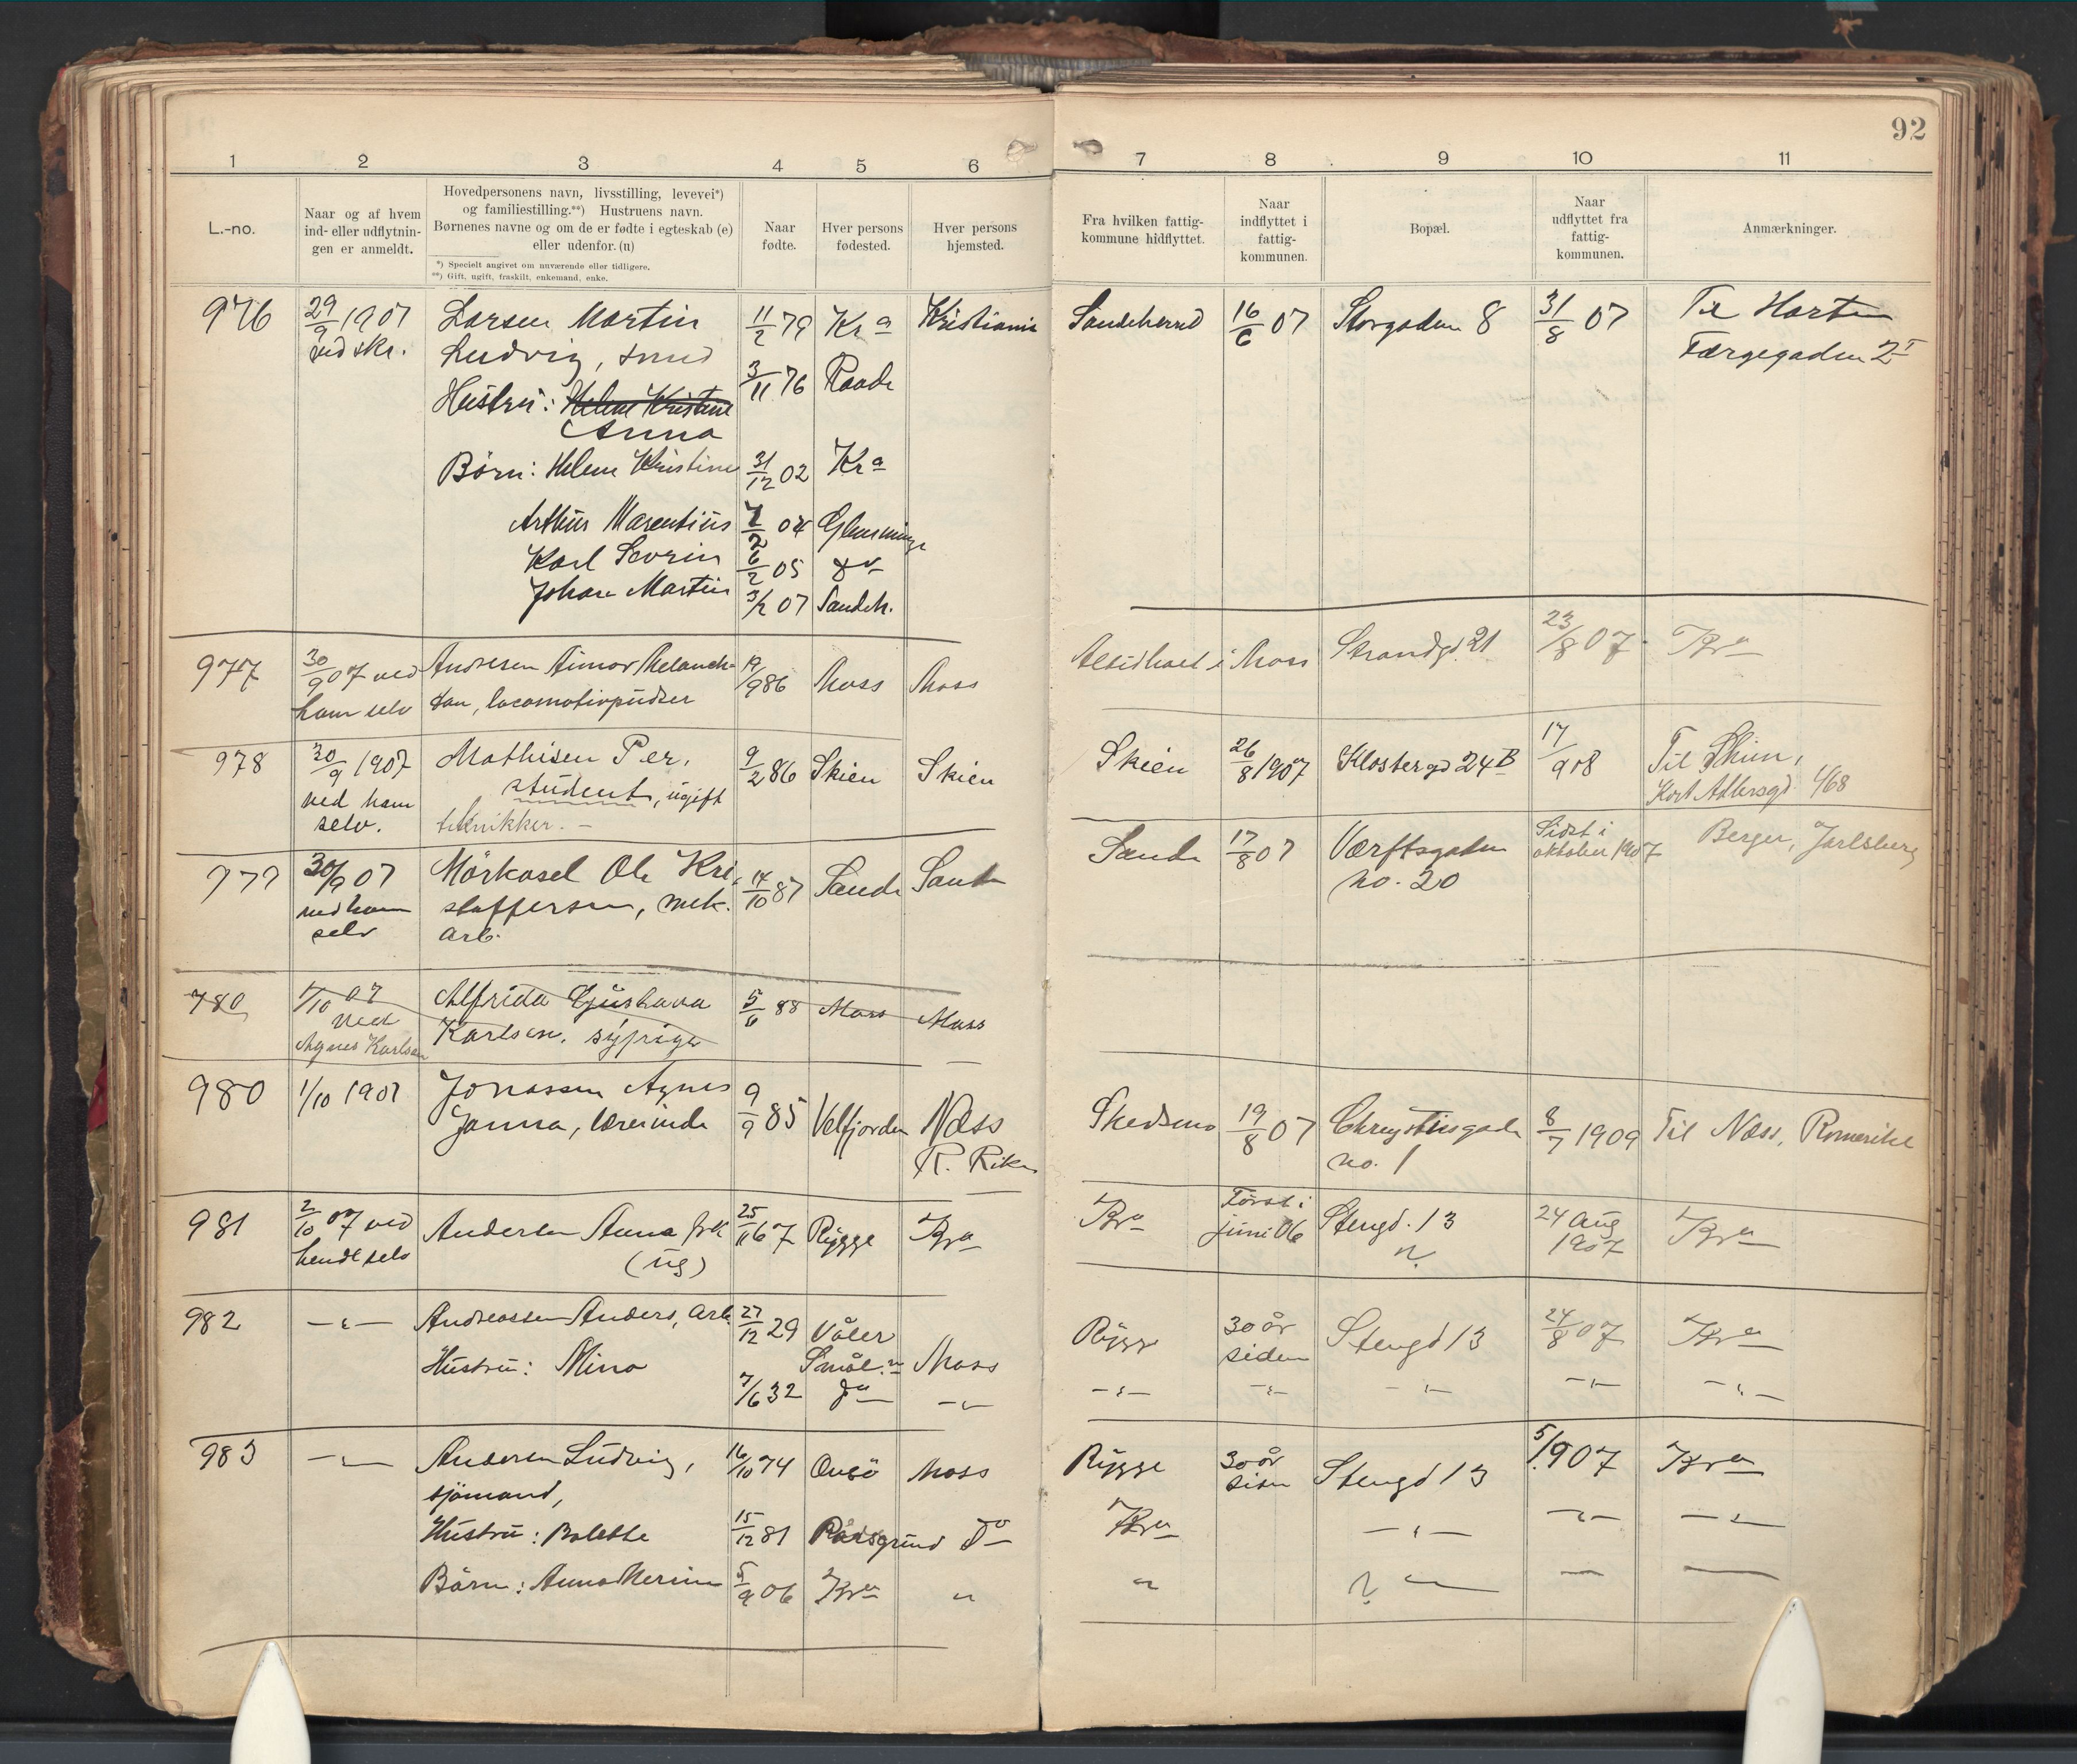 92
1 2 3 4 5 6 7 8 9 10 11
L.-no.
Naar og af hvem
ind- eller udflytnin-
gen er anmeldt.
Hovedpersonens navn, livsstilling, levevei*)
og familiestilling.**) Hustruens navn.
Børnenes navne og om de er fødte i egteskab (e)
eller udenfor. (u)
*) Specielt angivet om nuværende eller tidligere.
**) Gift, ugift, fraskilt, enkemand, enke.
Naar
fødte.
Hver persons
fødested.
Hver persons
hjemsted.
Fra hvilken fattig-
kommune hidflyttet.
Naar
indflyttet i
fattig-
kommunen.
Bopæl.
Naar
udflyttet fra
fattig-
kommunen.
Anmærkninger.
976 29/9 1907 Larsen Martin 11/2 79 Kra Kristiania Sandeherred 16/6 07 Storgaden 8 31/8 07 Til Horten
ved skr. Ludvig, smed Færgegaden 2
Hustru: Helene Kristine 3/11 76 Raade
Anna
Børn: Helene Kristine 31/12 02 Kra
Arthur Marentius 04 Glemminge
Karl Severin 6/2 05 do
Johan Martin 3/2 07 Sandeh.
977 30/9 07 ved Andresen Aimar Melanch- 19/9 86 Moss Moss Altid boet i Moss Strandgd. 21 23/8 07 Kra
ham selv ton, locomotivpudser
978 30/9 1907 Mathisen Per, 9/2 86 Skien Skien Skien 26/8 1907 Klostergd 24 B 17/9 08 Til Skien,
ved ham student, ugift Kort Adlersgd. 468
selv. tekniker. –
979 30/9 07 Mörkasel Ole Kri- 14/10 87 Sande Sande Sande 17/8 07 Værftsgaden Sidst i oktober 1907 Berger, Jarlsberg
ved ham stoffersen, mek. no. 20
selv arb.
780 1/10 07 Alfrida Gustava 5/6 88 Moss Moss
ved Karlsen, sypige
Agnes Karlsen
980 1/10 1907 Jonassen Agnes 9/9 85 Velfjorden Næss Skedsmo 19/8 07 Chrystiesgade 8/7 1909 Til Næss, Romerike
Janna, lærerinde R. Rike no. 1
981 2/10 07 ved Andersen Anna frk 25/11 67 Rygge Kra Kra Først i juni 06 Stengd. 13 24 Aug 1907 Kra
hende selv (ug)
982 –"– Andreassen Anders, arb. 27/12 29 Våler Smål. Moss Rygge 30 år siden Stengd 13 24/8 07 Kra
Hustru: Mina 7/6 32 do –"– –"– –"– –"– –"– –"–
983 –"– Andersen Ludvig, 16/10 74 Onsö Moss Rygge 30 år siden Stengd 13 5/9 07 Kra
sjömand,
Hustru: Bolette 15/12 81 Porsgrund do Kra –"– –"– –"–
Börn: Anna 5/9 06 Kra " " –"– – –